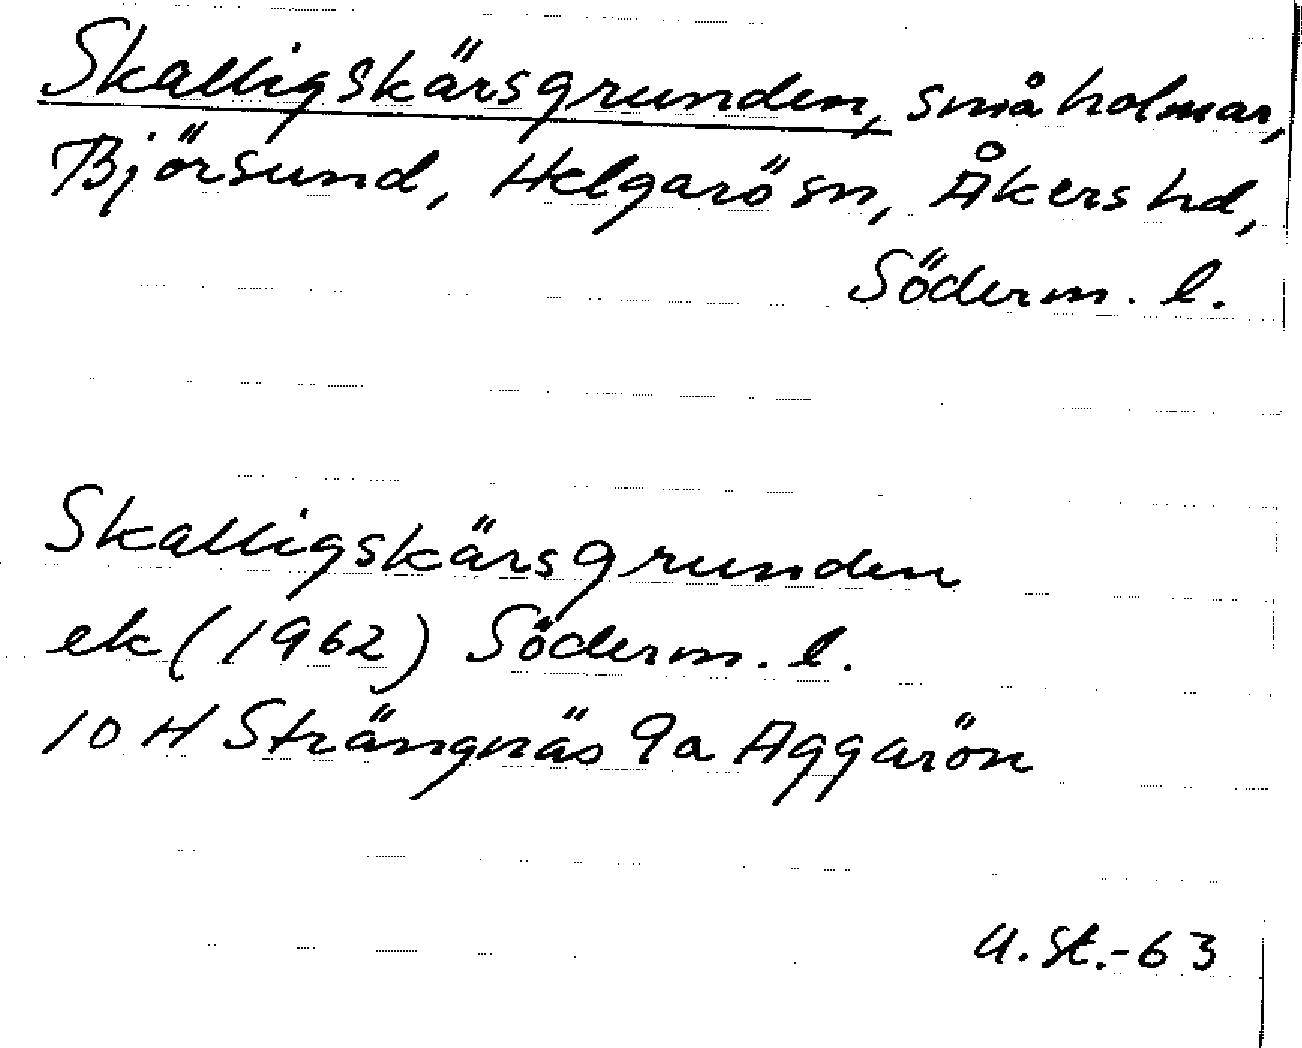 Skalligskärsgrunden, små holmar,
Björsund, Helgarö sn, Åkers hd,
Söderm. l.
Skalligskärsgrunden
ek (1962) Söderm. l.
10 H Strängnäs 9a Aggarön
A. St.-63